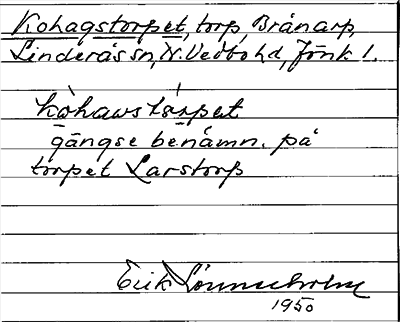 Kohagstorpet, torp, Brånarp,
Linderås sn, N. Vedbo hd, Jönk l.
kòhawstárpet
gängse benämn. på
torpet Larstorp
Erik Lönnerholm
1950